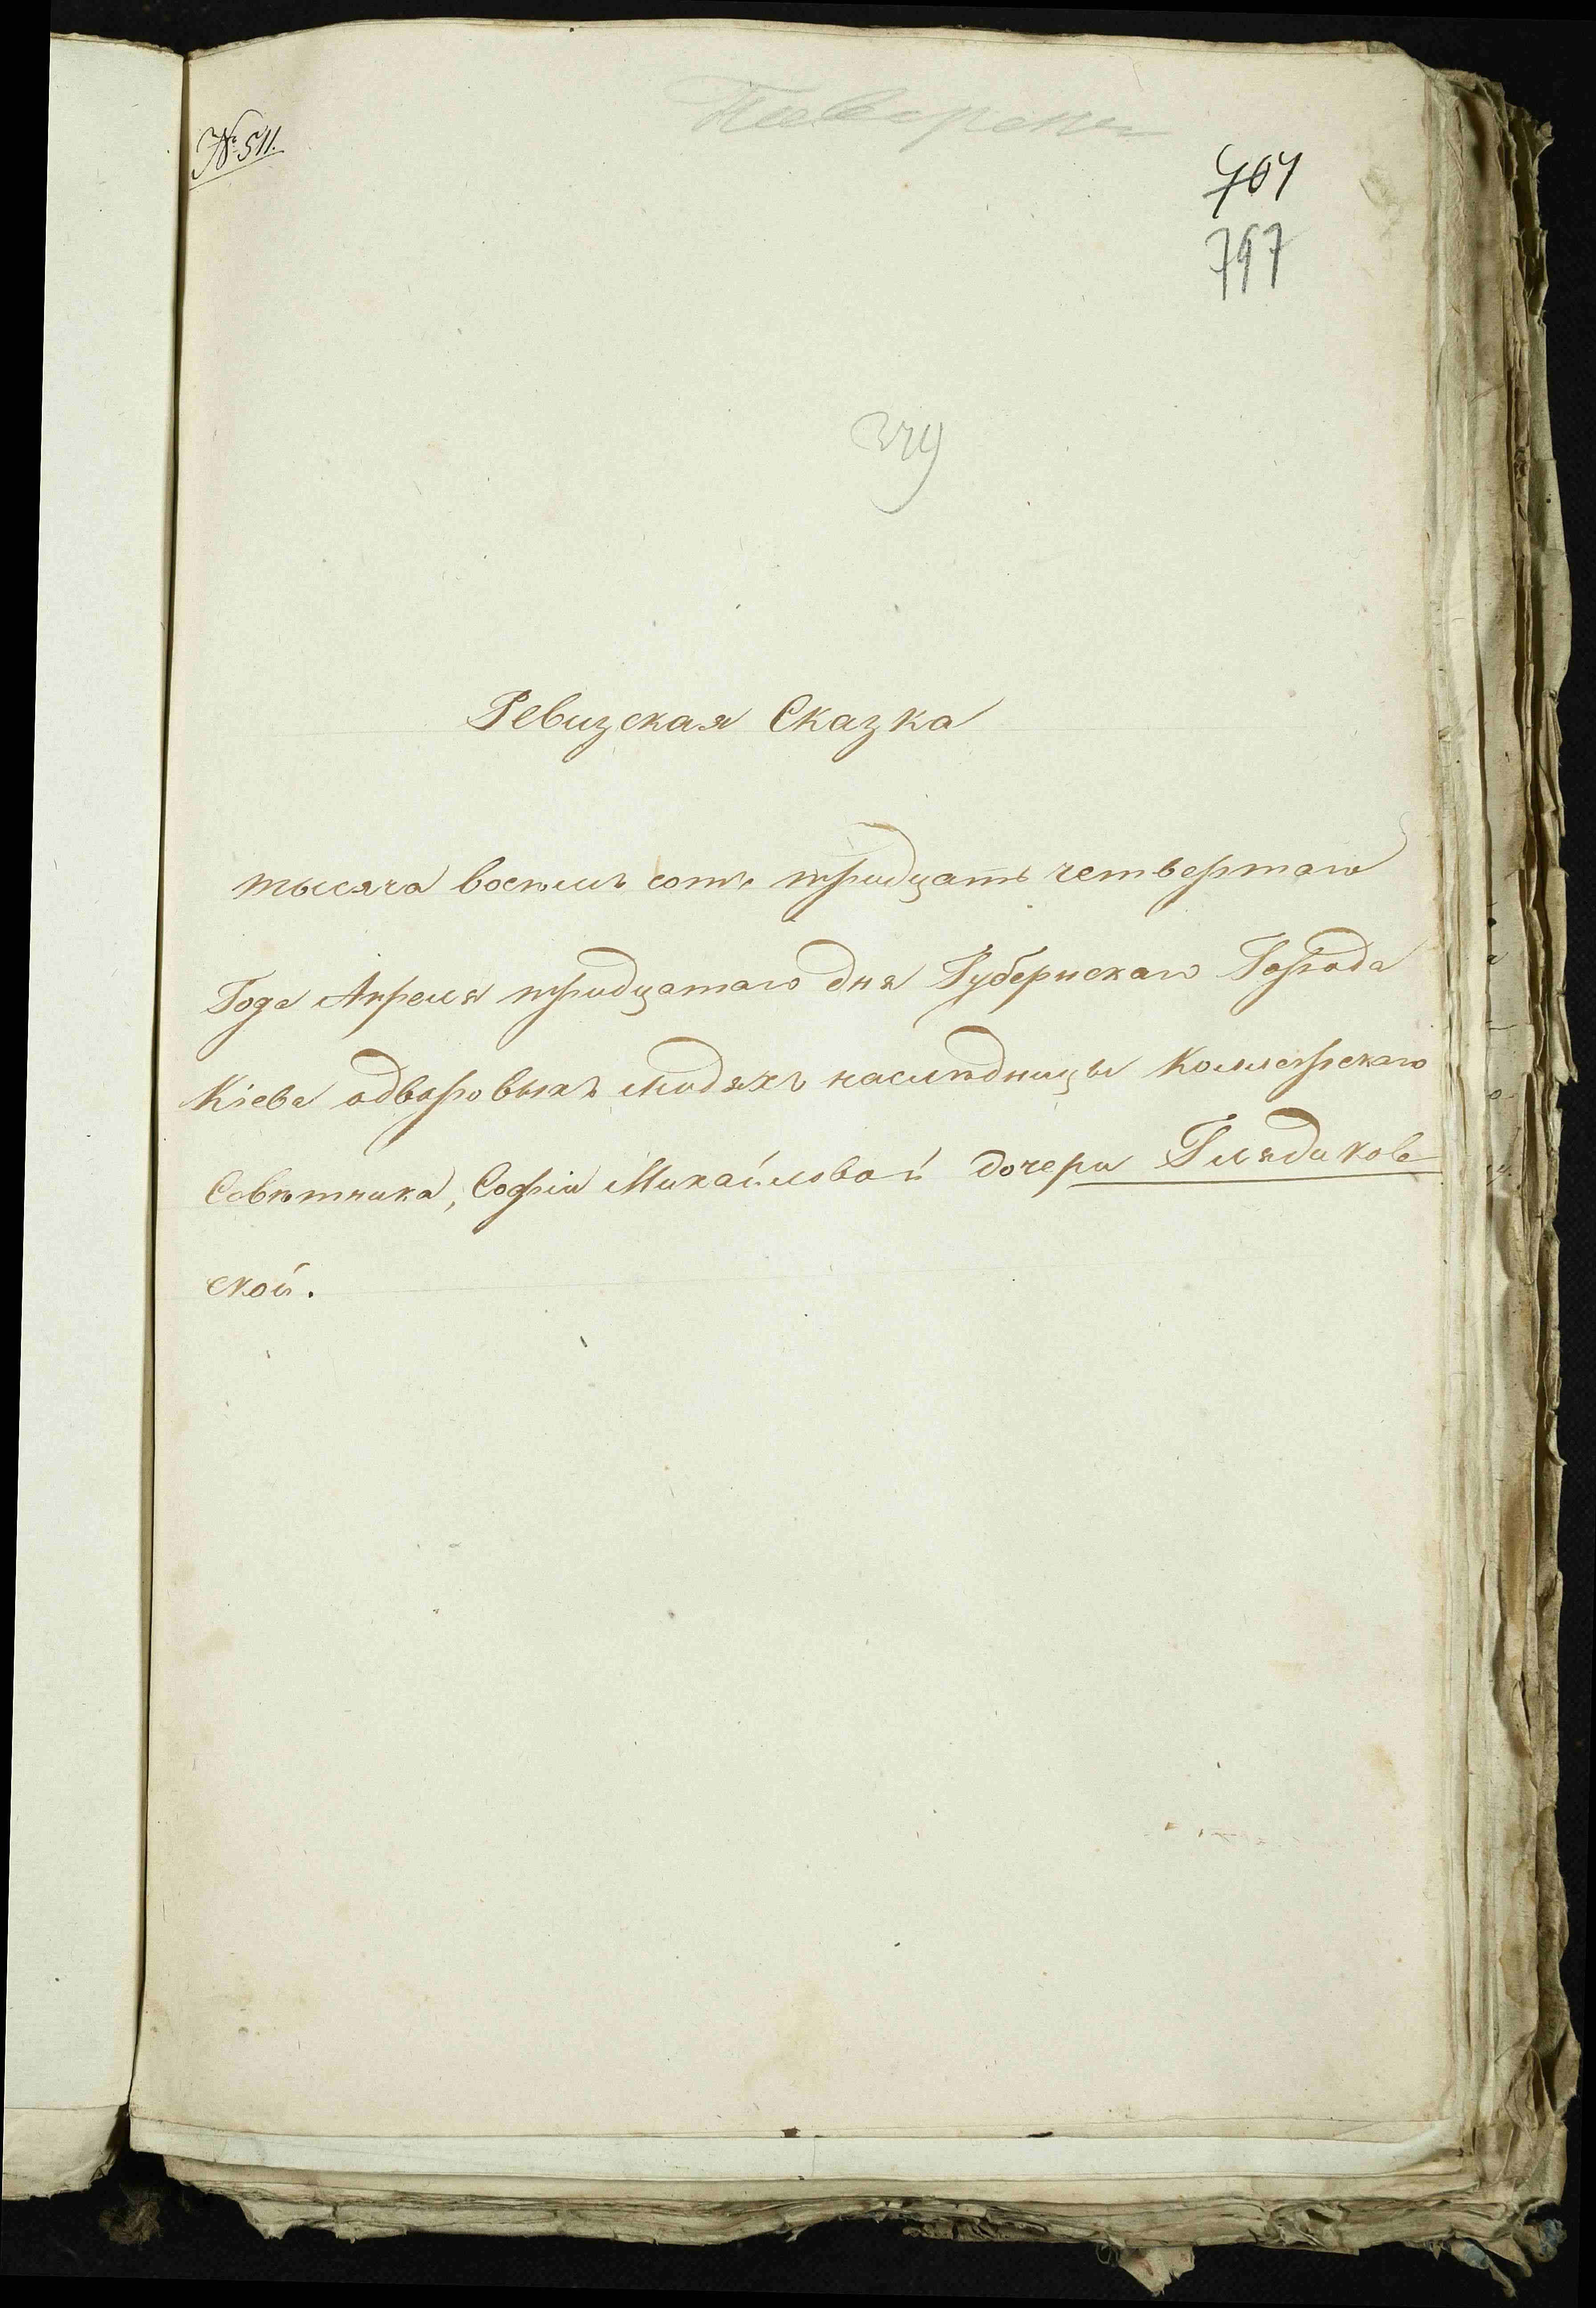 № 511.
707
797
Ревизская Сказка
тысяча восемь сотъ тридцать четвертаго
Года Апреля тридцатаго дня Губернскаго Города
Кіева одворовыхъ людяхъ наследницы Коллежскаго
Советника, Софіи Михайловой дочери Глядиков
ской.